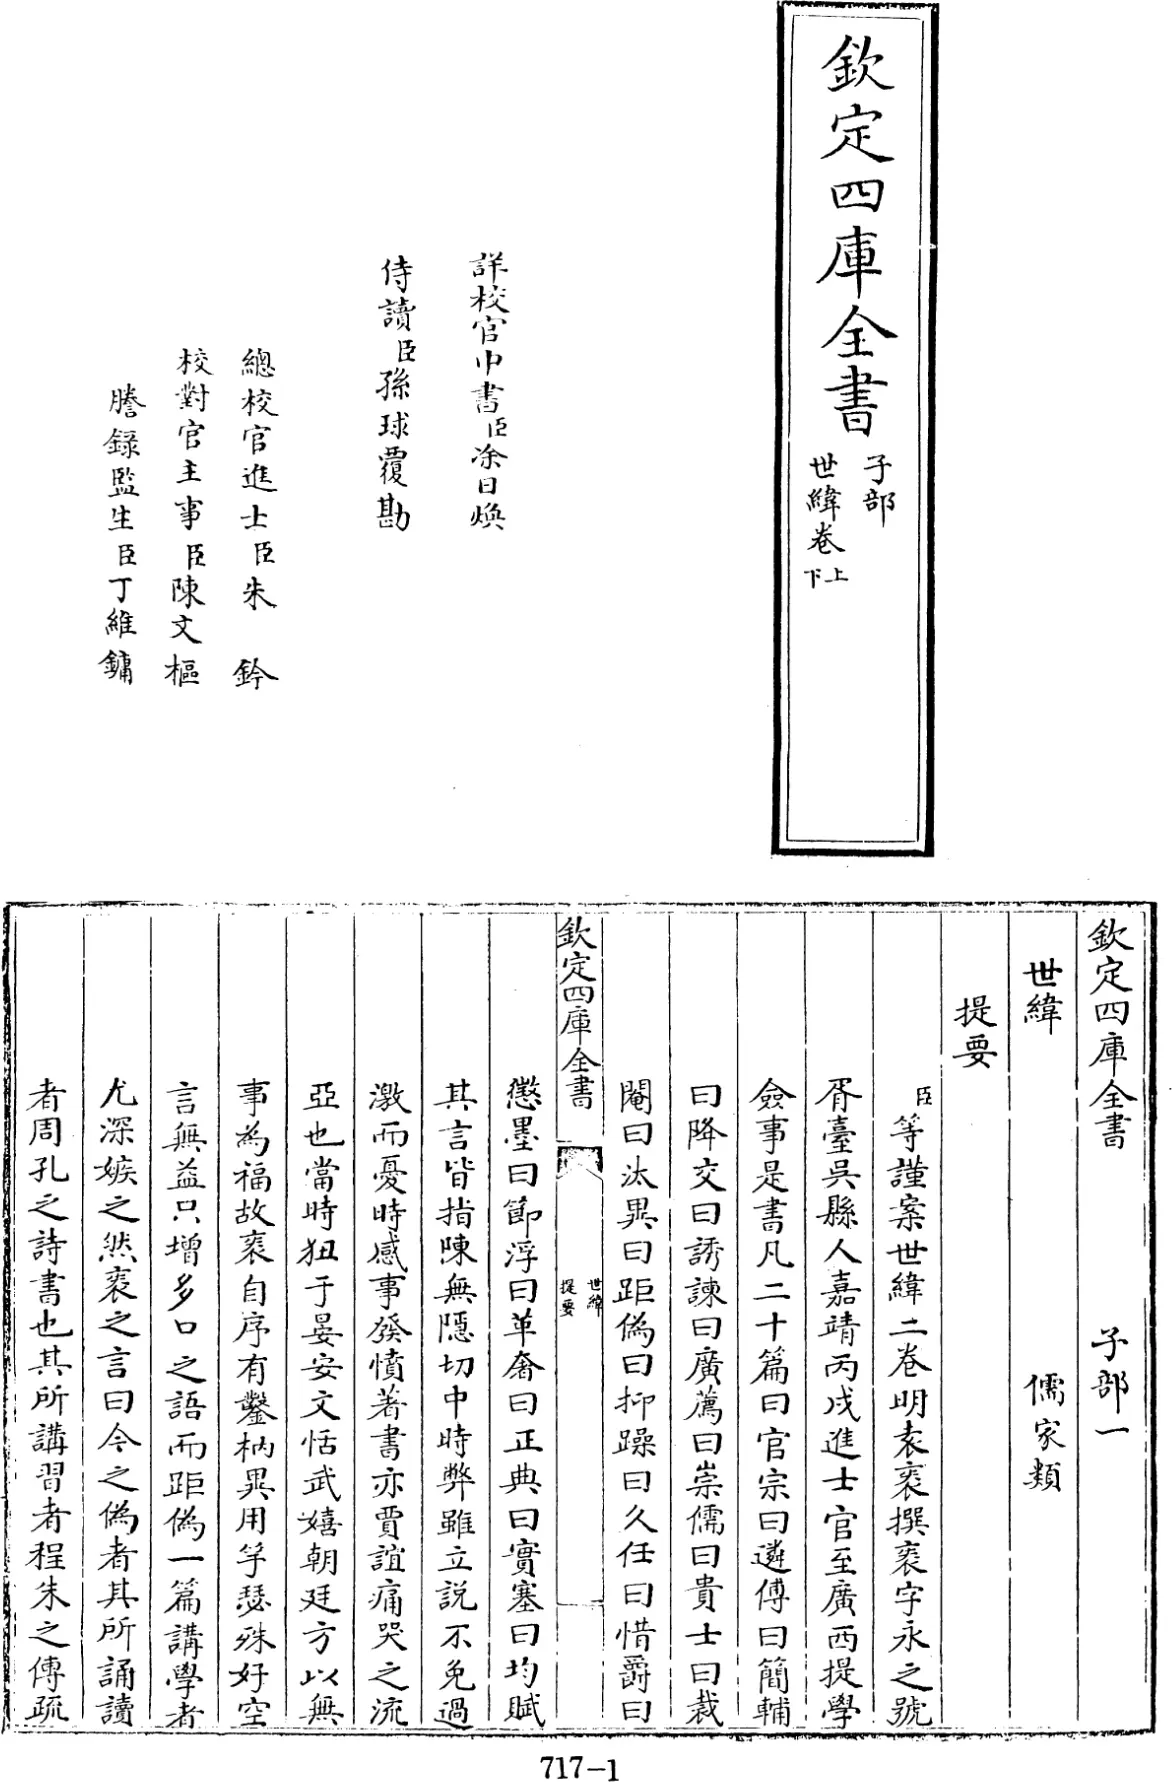 欽定四庫全書
子部
世緯卷上
下
詳校官中書臣涂日煥
侍讀臣孫球覆勘
總校官進士臣朱鈐
校對官主事臣陳文樞
謄録監生臣丁維鏞
欽定四庫全書 子部一
世緯 儒家類
提要
臣等謹案世緯二卷明袁袠撰袠字永之號
胥臺吳縣人嘉靖丙戌進士官至廣西提學
僉事是書凡二十篇曰官宗曰遴傅曰簡輔
曰降交曰誘諫曰廣薦曰崇儒曰貴士曰裁
閹曰汰異曰距偽曰抑躁曰久任曰惜爵曰
欽定四庫全書
世緯
提要
懲墨曰節浮曰革奢曰正典曰實塞曰均賦
其言皆指陳無隱切中時弊雖立説不免過
激而憂時感事發憤著書亦賈誼痛哭之流
亞也當時狃于晏安文恬武嬉朝廷方以無
事為福故袠自序有鑿枘異用竽瑟殊好空
言無益只增多口之語而距偽一篇講學者
尤深嫉之然袠之言曰今之偽者其所誦讀
者周孔之詩書也其所講習者程朱之傳疏
717-1